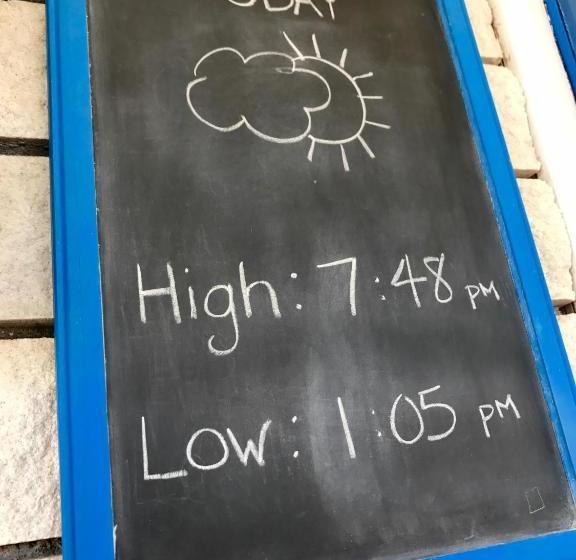 ODAY
High: 7:48 PM
Low: 1:05 PM